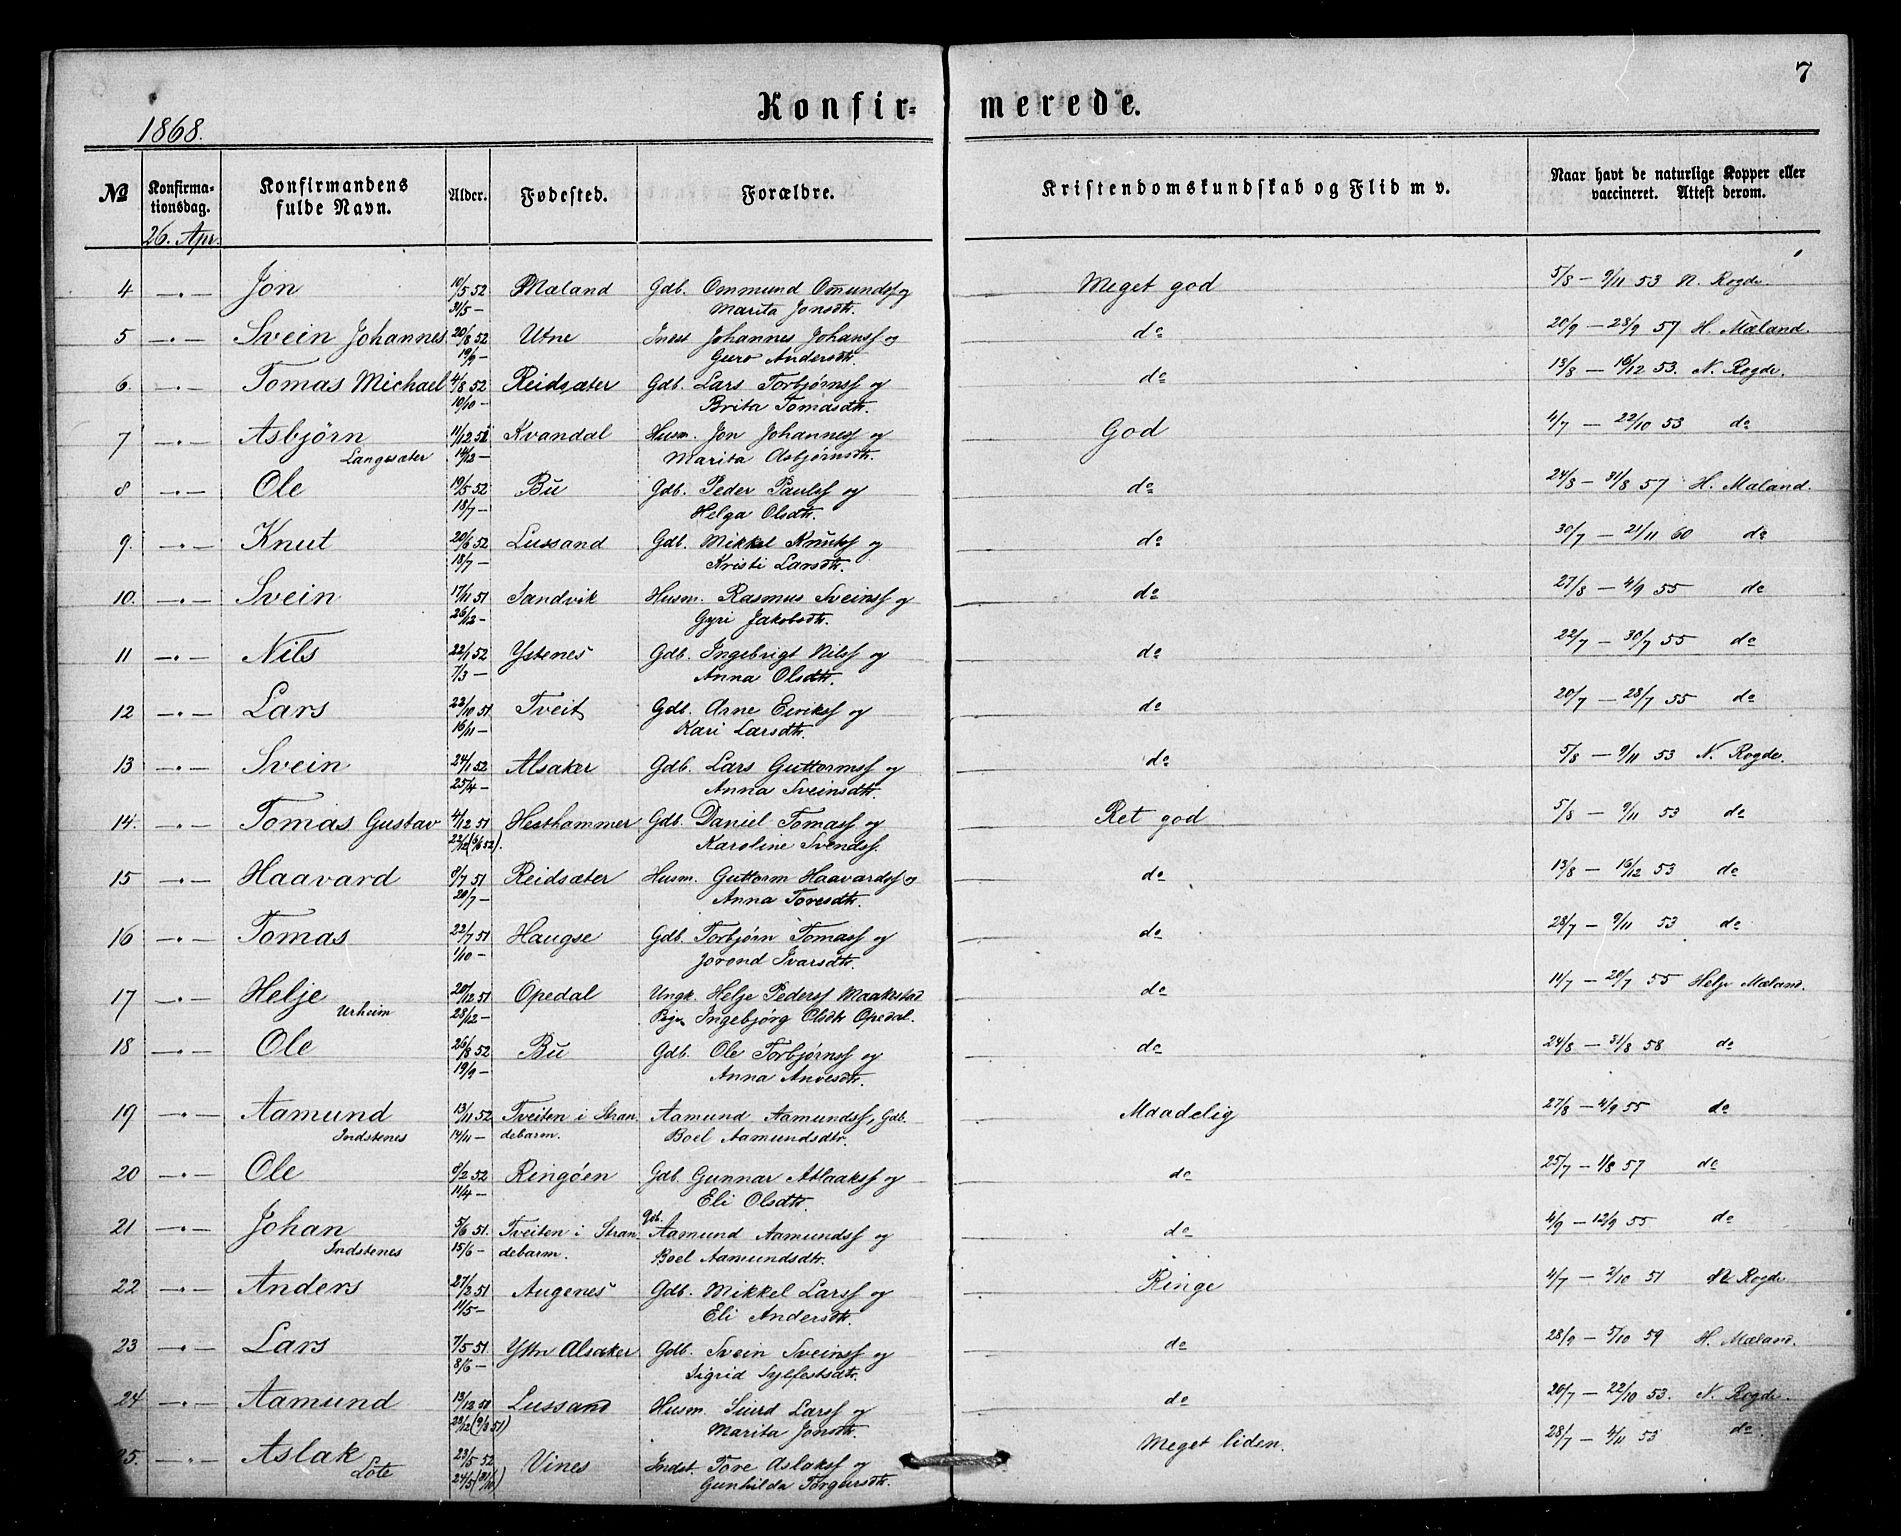 7
Konfir- merede.
1868.
No Konfirma-tionsdag. Konfirmandens fulde Navn. Alder. Fødested. Forældre. Kristendomskundskab og Flid m v. Naar havt de naturlige Kopper eller vaccineret. Attest derom.
26. Apr.
4 —"— Jon 10/5 52 Mæland Gdb. Ommund Omundsf og Meget god 5/8 — 9/11 53 N. Rogde.
31/5 — Marita Jonsdtr.
5 —"— Svein Johannes 20/8 52 Utne Inds Johannes Johansf og do 20/9 — 28/9 57 H. Mæland.
19/9 — Guro Andersdtr.
6. —"— Tomas Michael 4/8 52 Reidsæter Gdb. Lars Torbjørnsf og do 13/8 — 16/12 53. N. Rogde.
10/10 — Brita Tomasdtr.
7 —"— Asbjørn 11/12 51 Kvandal Husm. Jon Johannesf og God 4/7 — 22/10 53 do
Langesæter 14/12 — Marita Asbjørnsdtr.
8 —"— Ole 19/5 52 Bu Gdb. Peder Paulsf og do 24/8 — 31/8 57 H. Mæland.
18/7 — Helga Olsdtr.
9. —"— Knut 20/6 52 Lussand Gdb. Mikkel Knutsf og do 30/7 — 21/11 60 do
18/7 — Kristi Larsdtr.
10. —"— Svein 17/11 51 Sandvik Husm. Rasmus Sveinsf og do 27/8 — 4/9 55 do
26/12 — Gyri Jakobsdtr.
11 —"— Nils 22/1 52 Ystenes Gdb. Ingebrigt Nilsf og do 22/7 — 30/7 55 do
7/3 — Anna Olsdtr.
12 —"— Lars 22/10 51 Tveit Gdb. Arne Eiriksf og do 20/7 — 28/7 55 do
16/11 — Kari Larsdtr.
13 —"— Svein 24/1 52 Alsaker Gdb. Lars Guttormsf og do 5/8 — 9/11 53 N. Rogde.
25/4 — Anna Sveinsdtr.
14. —"— Tomas Gustav 4/12 51 Hesthammer Gdb. Daniel Tomasf og Ret god 5/8 — 9/11 53 do
22/12 (9/6 52). Karoline Svendsf.
15 —"— Haavard 8/7 51 Reidsæter Husm. Guttorm Haavardsf og do 13/8 — 16/12 53 do
20/7 — Anna Toresdtr.
16 —"— Tomas 22/7 51 Haugse Gdb. Torbjørn Tomasf og do 28/7 — 9/11 53 do
1/10 — Jorond Ivarsdtr.
17 —"— Helje 20/12 51 Opedal Ungk. Helje Pedersf Maakestad do 11/7 — 20/7 55 Helje Mæland.
Urheim 28/12 — Pige Ingebjørg Olsdtr Opedal.
18 —"— Ole 26/8 52 Bu Gdb. Ole Torbjørnsf og do 24/8 — 31/8 58 do
19/9 — Anna Arvesdtr.
19 —"— Aamund 13/11 52 Tveiten i Stran Aamund Aamundsf, Gdb. Maadelig 27/8 — 4/9 55 do
Indstenes 14/11 — debarm. Boel Aamundsdtr.
20 —"— Ole 8/2 52 Ringøen Gdb. Gunnar Aslaaksf og do 25/7 — 1/8 57 do
11/4 — Eli Olsdtr.
21 —"— Johan 5/6 51. Tveiten i Stran Gdb. Aamund Aamundsf og do 4/9 — 12/9 55 do
Indstenes 15/6 — debarm. Boel Aamundsdtr.
22 —"— Anders 27/2 51 Augenes Gdb. Mikkel Larsf og Ringe 4/7 — 2/10 51 N Rogde
11/5 — Eli Andersdtr.
23 —"— Lars 7/5 51 Ytre Alsaker Gdb. Svein Sveinsf og do 28/9 — 5/10 59 H. Mæland.
8/6 — Sigrid Sylfestsdtr.
24 —"— Aamund 13/12 50 Lussand Husm. Siurd Larsf og do 20/7 — 22/10 53. N. Rogde.
29/12 (9/3 51) Marita Jonsdtr.
25. —"— Aslak 23/5 52 Vines Indst. Tore Aslaksf og Meget liden. 28/7 — 4/11 53 do
Lote 24/5 Gunhilda Torgersdtr.